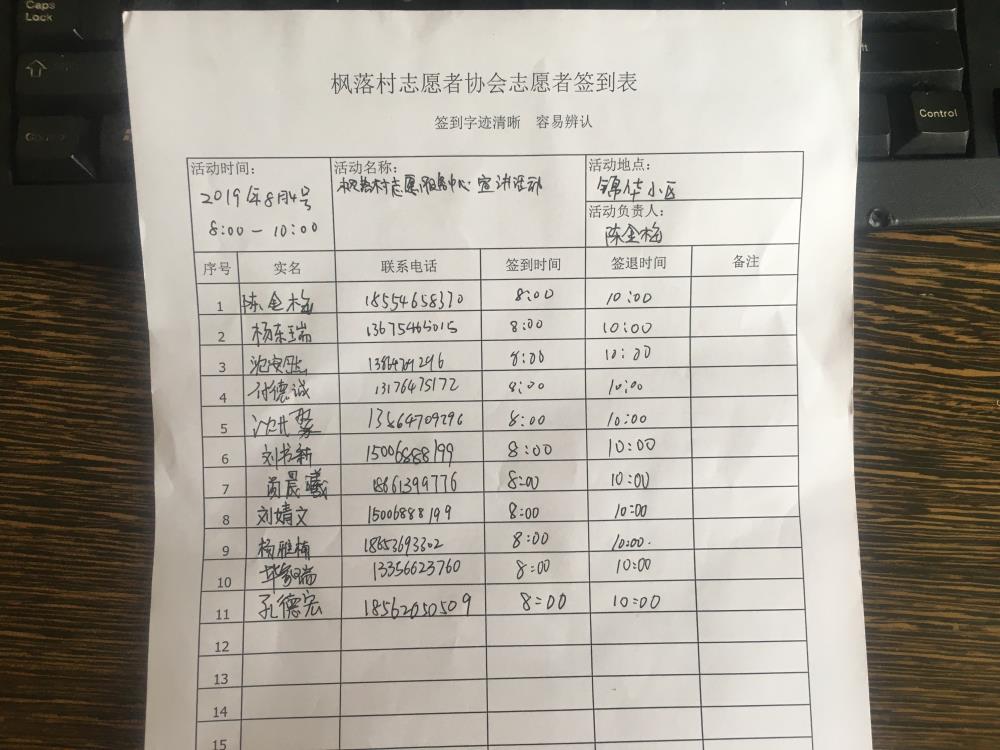 Caps
Lock
Control
枫落村志愿者协会志愿者签到表
签到字迹清晰 容易辨认
活动时间：
2019年8月4号
8:00-10:00
活动名称：
枫落村志愿服务中心宣讲活动
活动地点：
锦华小区
活动负责人：
陈金梅
序号 实名 联系电话 签到时间 签退时间 备注
1 陈金梅 18554658370 8:00 10:00
2 杨东瑞 13675465015 8:00 10:00
3 8:00 10:00
4 付德诚 13176475172 8:00 10:00
5 13864709296 8:00 10:00
6 刘书新 15006888199 8:00 10:00
7 晨曦 18661399776 8:00 10:00
8 刘婧文 15006888199 8:00 10:00
9 杨雅楠 18653693302 8:00 10:00.
10 13356623760 8:00 10:00
11 孔德宏 18562050509 8:00 10:00
12
13
14
15